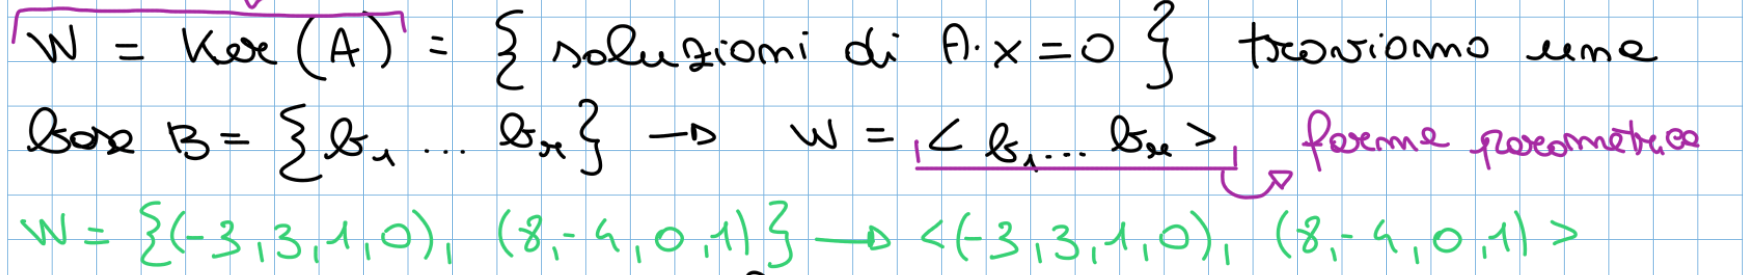 W = Ker (A) = { soluzioni di A· x = 0 } troviamo una
base B = { b₁ ... bᵣ } → W = < b₁ ... bᵣ > forma parametrica
W = {(-3,3,1,0), (8,-4,0,1)} → <(-3,3,1,0), (8,-4,0,1)>